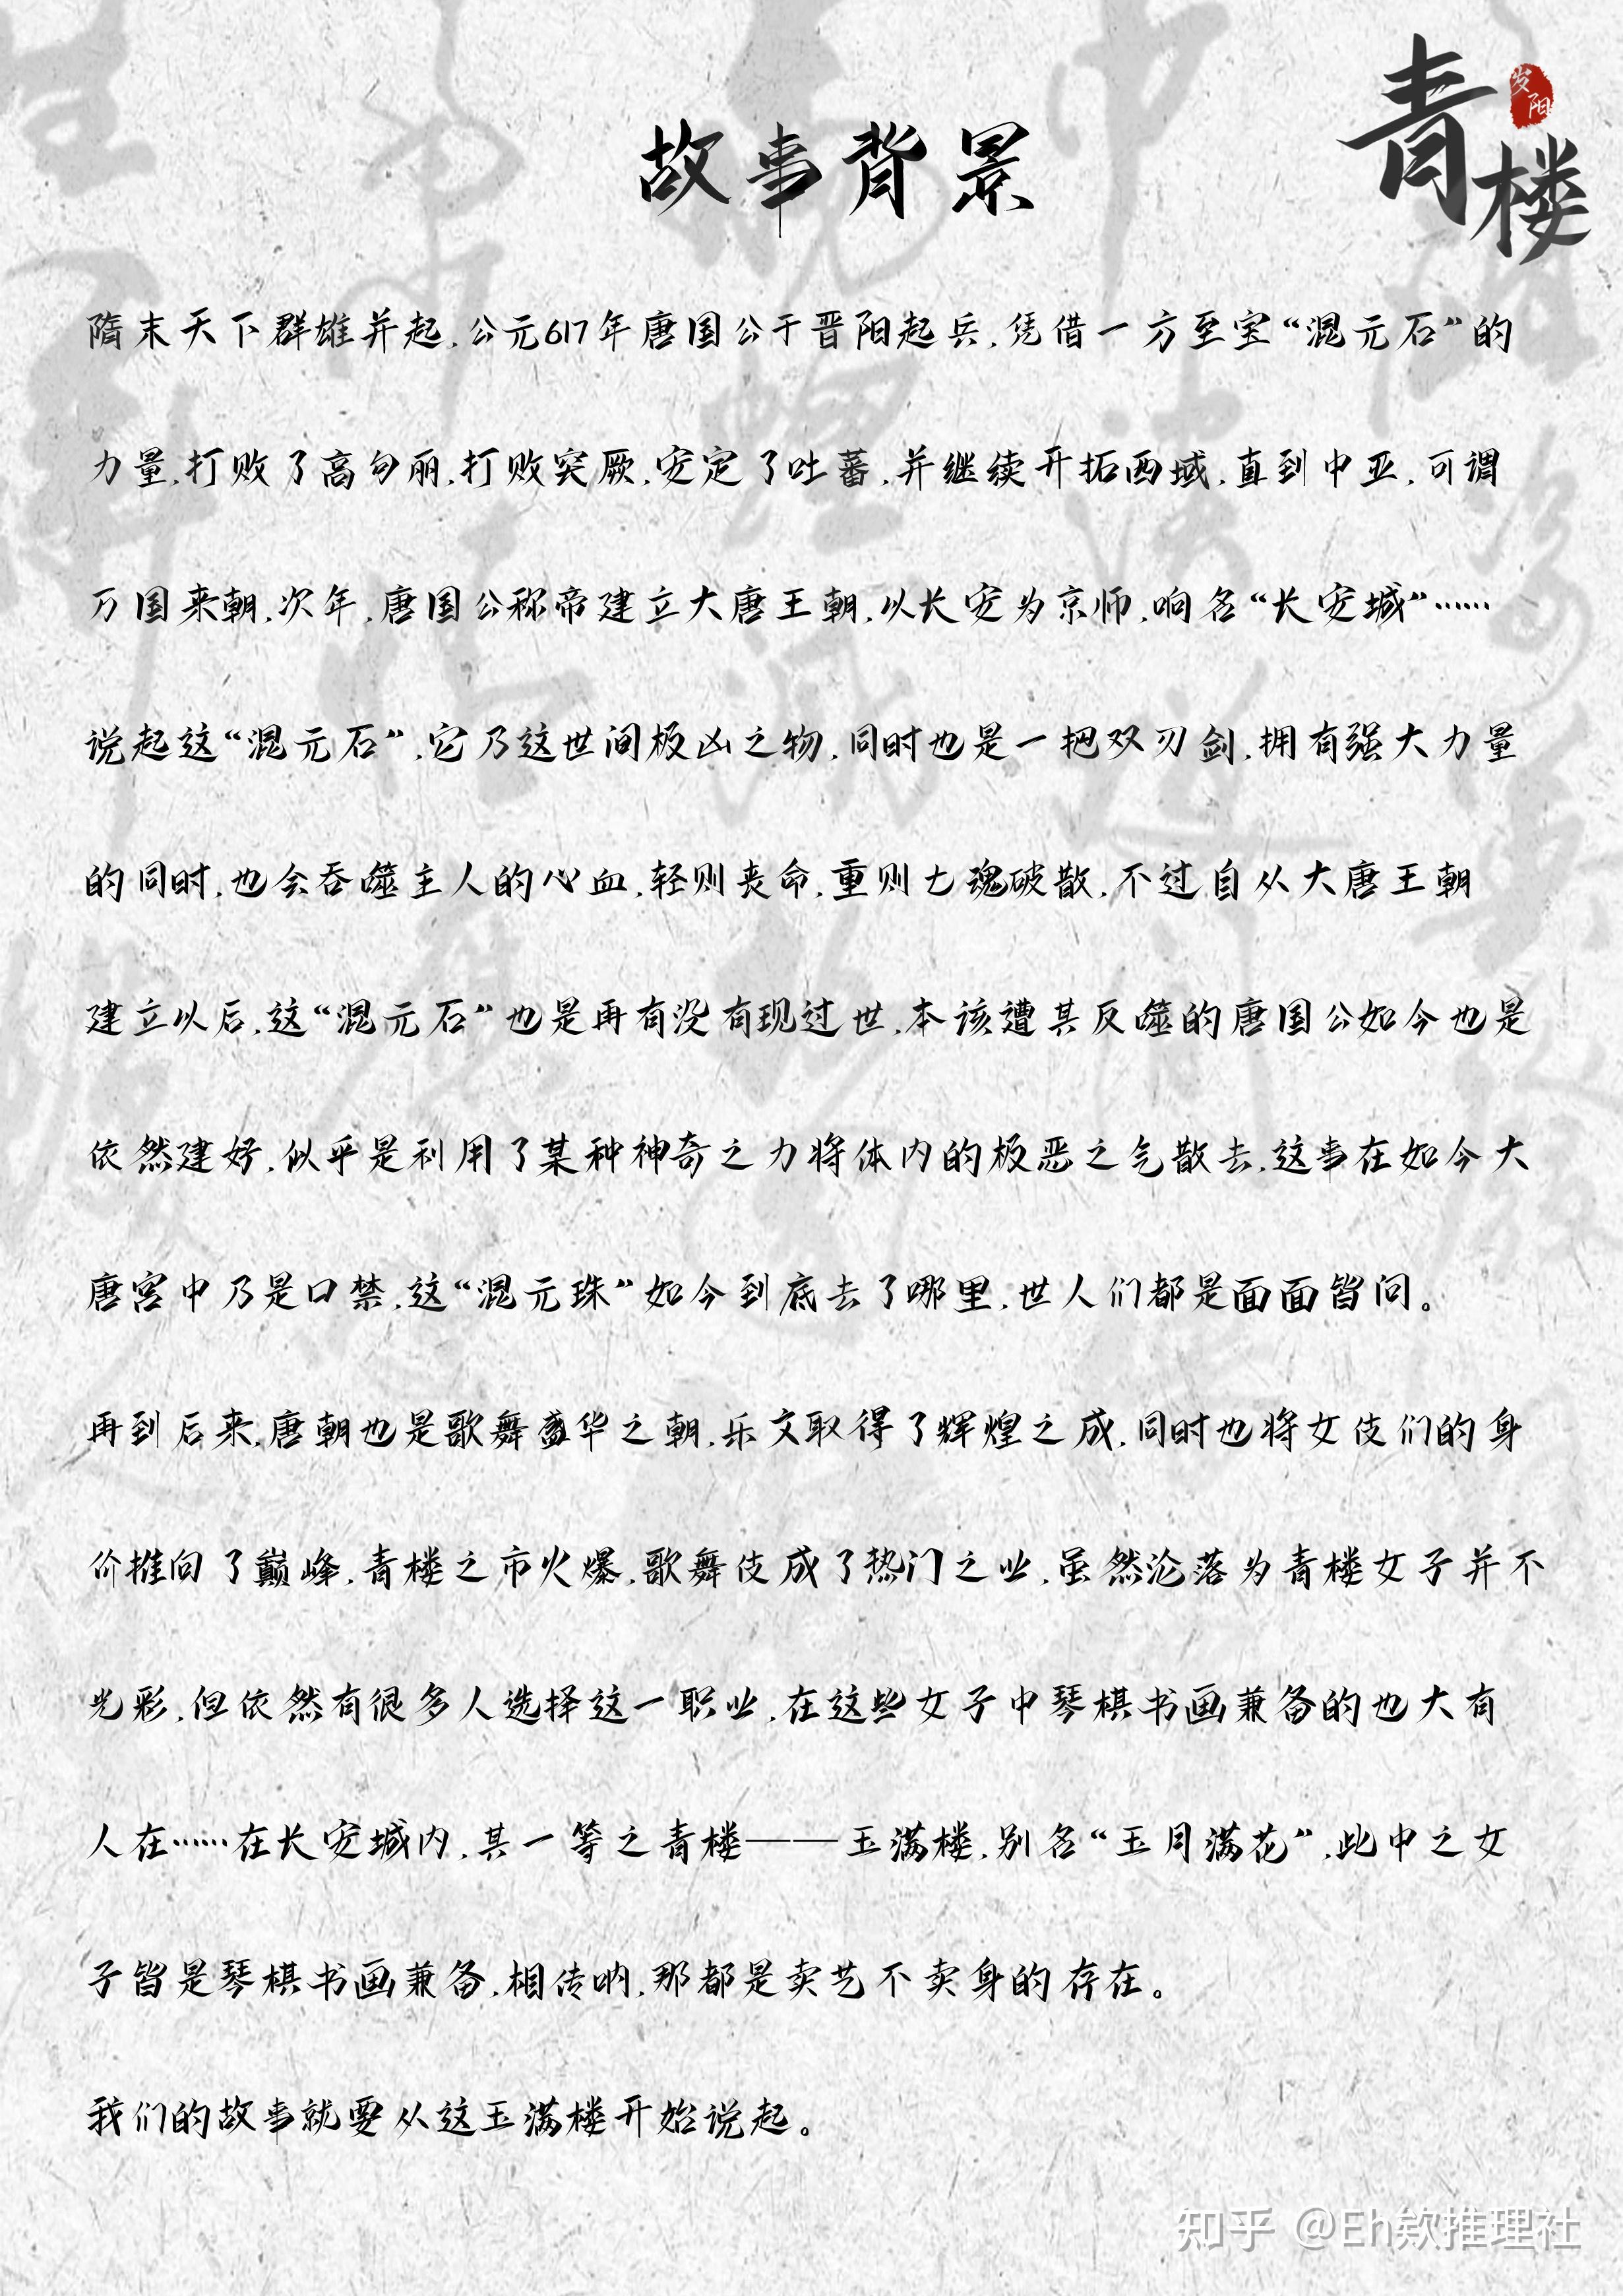 青楼
岁阳
故事背景
隋末天下群雄并起,公元617年唐国公于晋阳起兵,凭借一方至宝“混元石”的
力量,打败了高句丽,打败突厥,安定了吐蕃,并继续开拓西域,直到中亚,可谓
万国来朝,次年,唐国公称帝建立大唐王朝,以长安为京师,响名“长安城”……
说起这“混元石”,它乃这世间极凶之物,同时也是一把双刃剑,拥有强大力量
的同时,也会吞噬主人的心血,轻则丧命,重则七魂破散,不过自从大唐王朝
建立以后,这“混元石”也是再有没有现过世,本该遭其反噬的唐国公如今也是
依然建好,似乎是利用了某种神奇之力将体内的极恶之气散去,这事在如今大
唐宫中乃是口禁,这“混元珠”如今到底去了哪里,世人们都是面面皆问。
再到后来,唐朝也是歌舞盛华之朝,乐文取得了辉煌之成,同时也将女伎们的身
价推向了巅峰,青楼之市火爆,歌舞伎成了热门之业,虽然沦落为青楼女子并不
光彩,但依然有很多人选择这一职业,在这些女子中琴棋书画兼备的也大有
人在……在长安城内,其一等之青楼——玉满楼,别名“玉月满花”,此中之女
子皆是琴棋书画兼备,相传呐,那都是卖艺不卖身的存在。
我们的故事就要从这玉满楼开始说起。
知乎 @Eh欸推理社